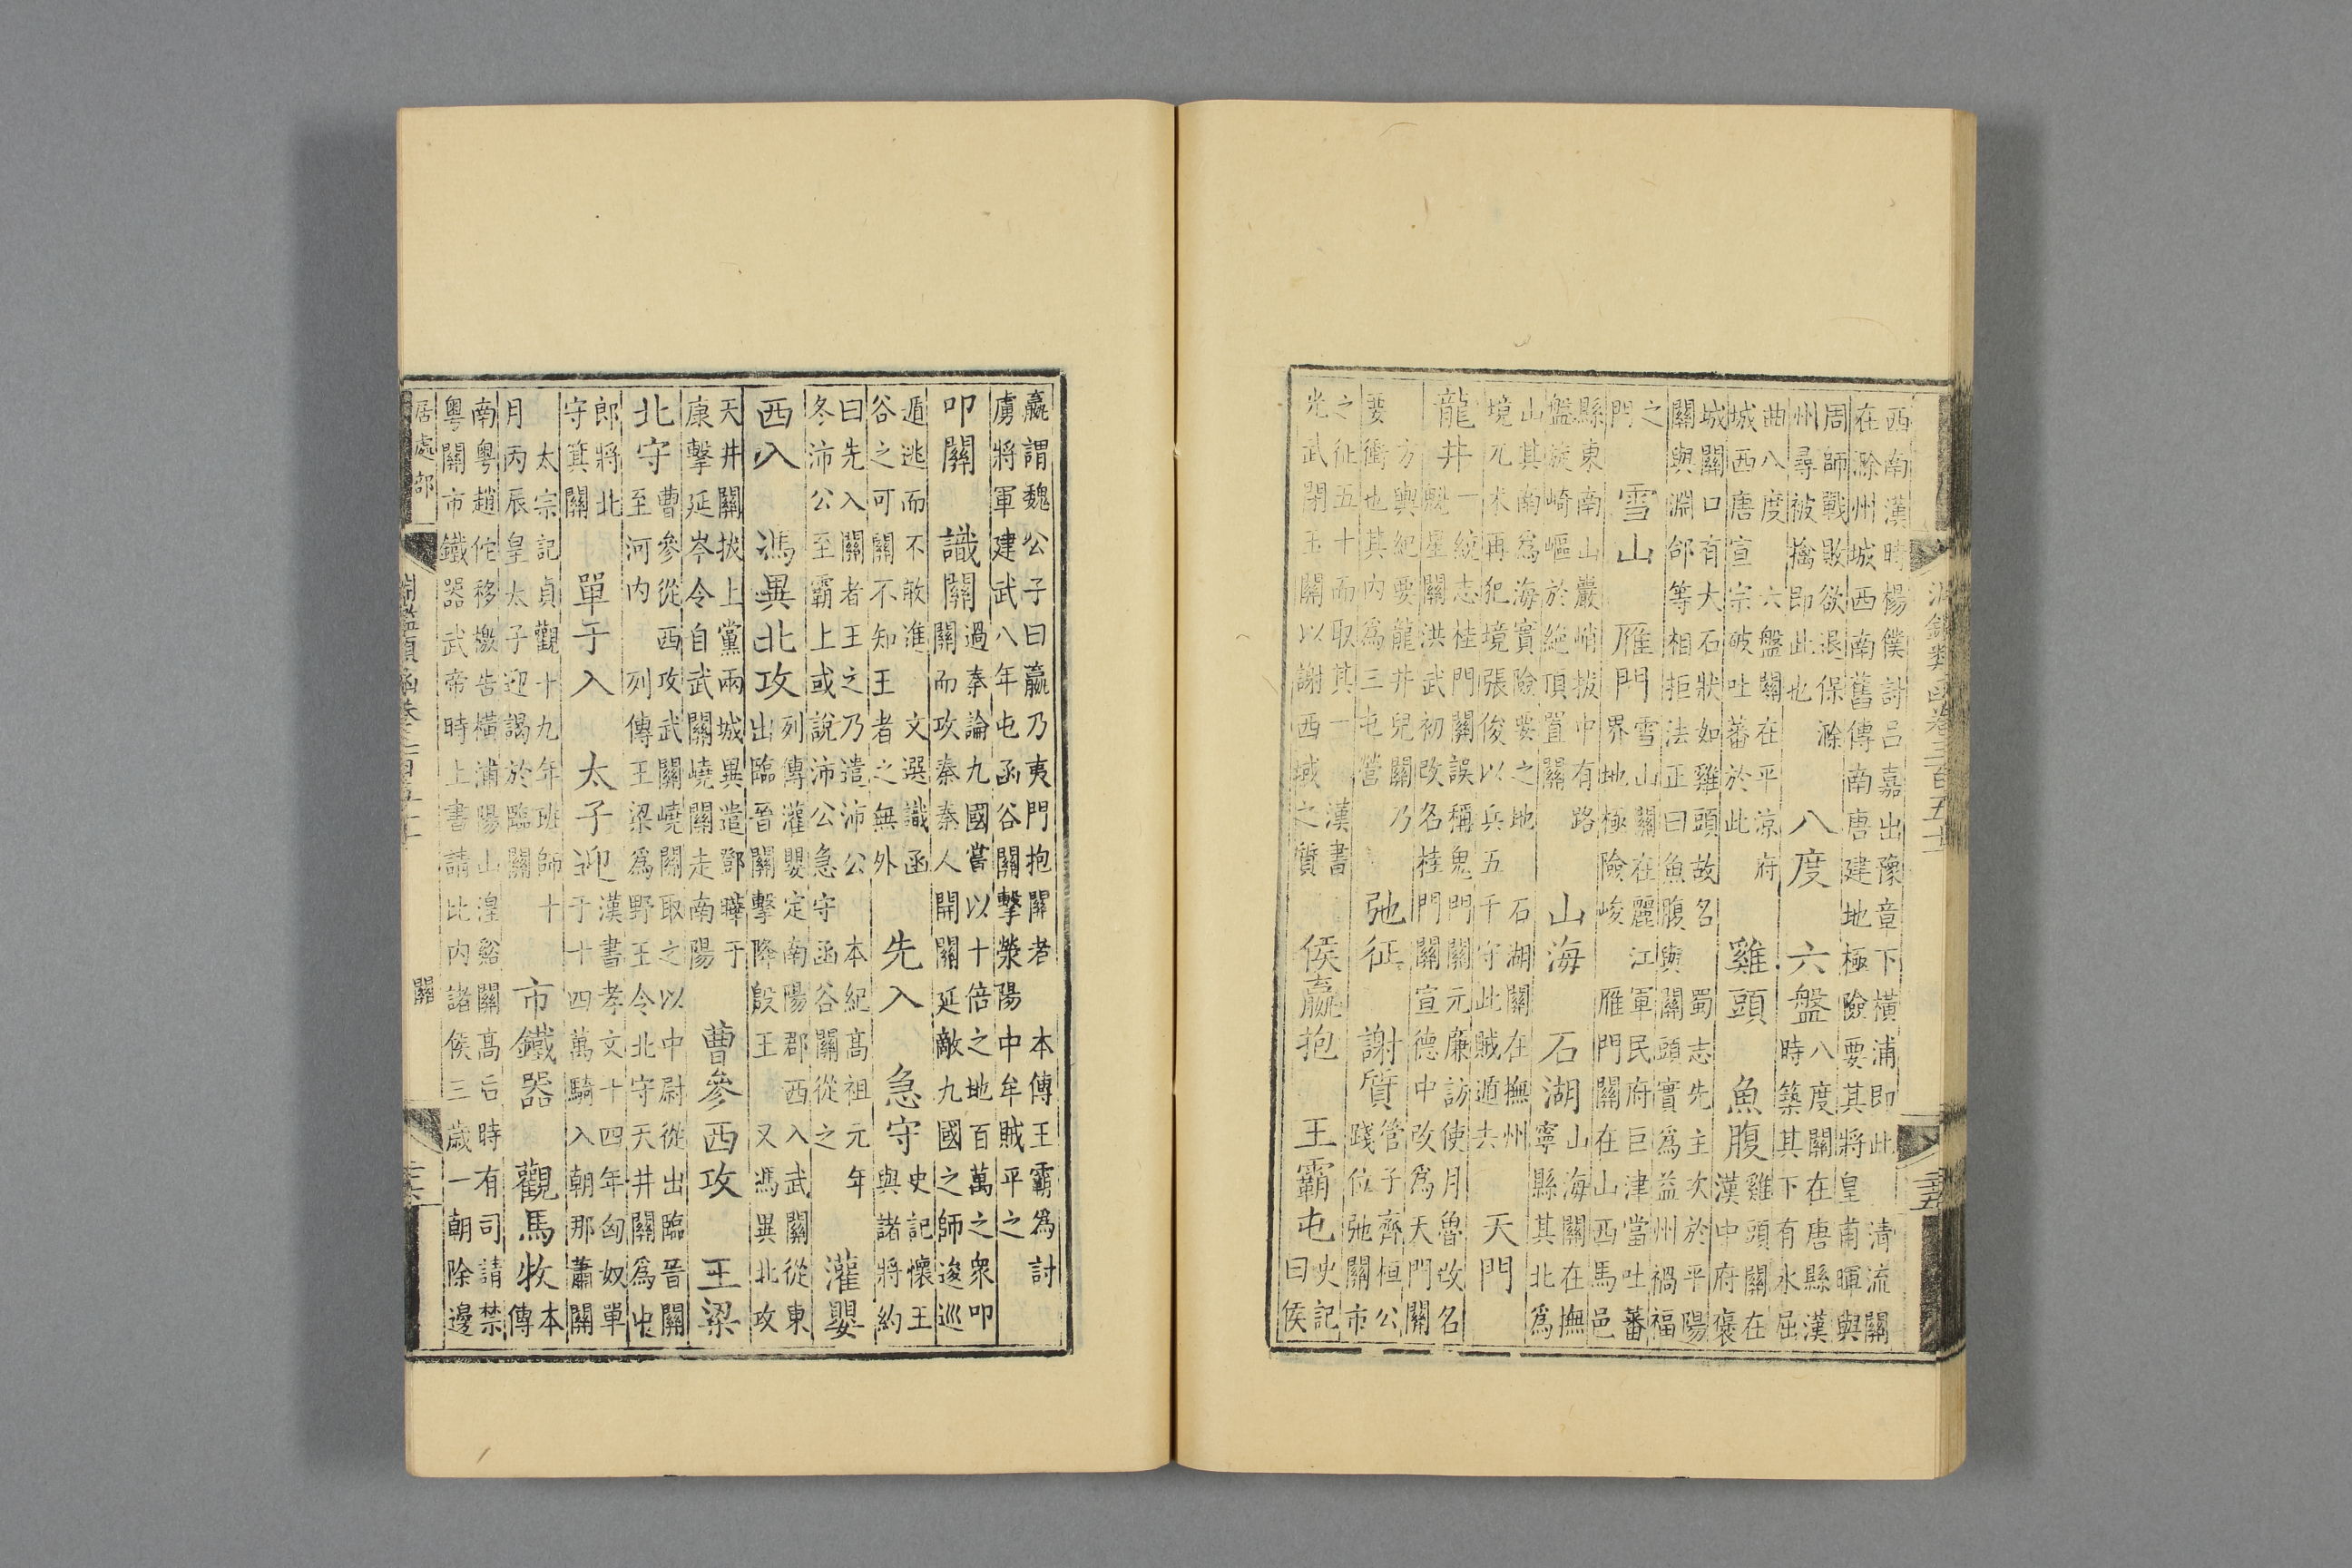 淵鑑類函卷三百五十 二十五
西南漢時楊僕討呂嘉出豫章下橫浦即此 清流關
在滁州城西南舊傳南唐建地極險要其將皇甫暉與
周師戰敗欲退保滁
州尋被擒即此也
八度 六盤
八度關在唐縣漢
時築其下有水屈
曲八度 六盤關在平涼府
城西唐宣宗破吐蕃於此
雞頭 魚腹
雞頭關在
漢中府褒
城關口有大石狀如雞頭故名 蜀志先主次於平陽
關與淵郃等相拒法正曰魚腹與關頭實為益州禍福
之
門
雪山 雁門
雪山關在麗江軍民府巨津當吐蕃
界地極險峻 雁門關在山西馬邑
縣東南山巖峭拔中有路
盤旋崎嶇於絕頂置關
山海 石湖
山海關在撫
寧縣其北為
山其南為海實險要之地 石湖關在撫州
境兀朮再犯境張俊以兵五千守此賊遁去
天門
龍井
一統志桂門關誤稱鬼門關元廉訪使月魯改名
魁星關洪武初改名桂門關宣德中改為天門關
方輿紀要龍井兒關乃
要衝也其內為三屯營
弛征 謝質
管子齊桓公
踐位弛關市
之征五十而取其一 漢書
光武閉玉關以謝西域之質
侯嬴抱 王霸屯
史記
曰侯
嬴謂魏公子曰嬴乃夷門抱關者 本傳王霸為討
虜將軍建武八年屯函谷關擊滎陽中牟賊平之
叩關 識關
過秦論九國嘗以十倍之地百萬之衆叩
關而攻秦秦人開關延敵九國之師逡巡
遁逃而不敢進 文選識函
谷之可關不知王者之無外
先入 急守
史記懷王
與諸將約
曰先入關者王之乃遣沛公 本紀高祖元年
冬沛公至霸上或說沛公急守函谷關從之
灌嬰
西入 馮異北攻
列傳灌嬰定南陽郡西入武關從東
出臨晉關擊降殷王 又馮異北攻
天井關拔上黨兩城異遣鄧曄于
康擊延岑令自武關嶢關走南陽
曹參西攻 王梁
北守
曹參從西攻武關嶢關取之以中尉從出臨晉關
至河內 列傳王梁為野王令北守天井關為中
郎將北
守箕關
單于入 太子迎
漢書孝文十四年匈奴單
于十四萬騎入朝那蕭關
太宗記貞觀十九年班師十
月丙辰皇太子迎謁於臨關
市鐵器 觀馬牧
本
傳
南粵趙佗移檄告橫浦陽山湟谿關高后時有司請禁
粵關市鐵器武帝時上書請比內諸侯三歲一朝除邊
居處部 淵鑑類函卷三百五十 關 二十六